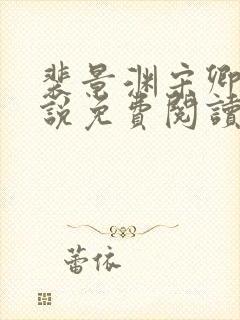 裴景渊宋卿
說免費閱讀
蕾依